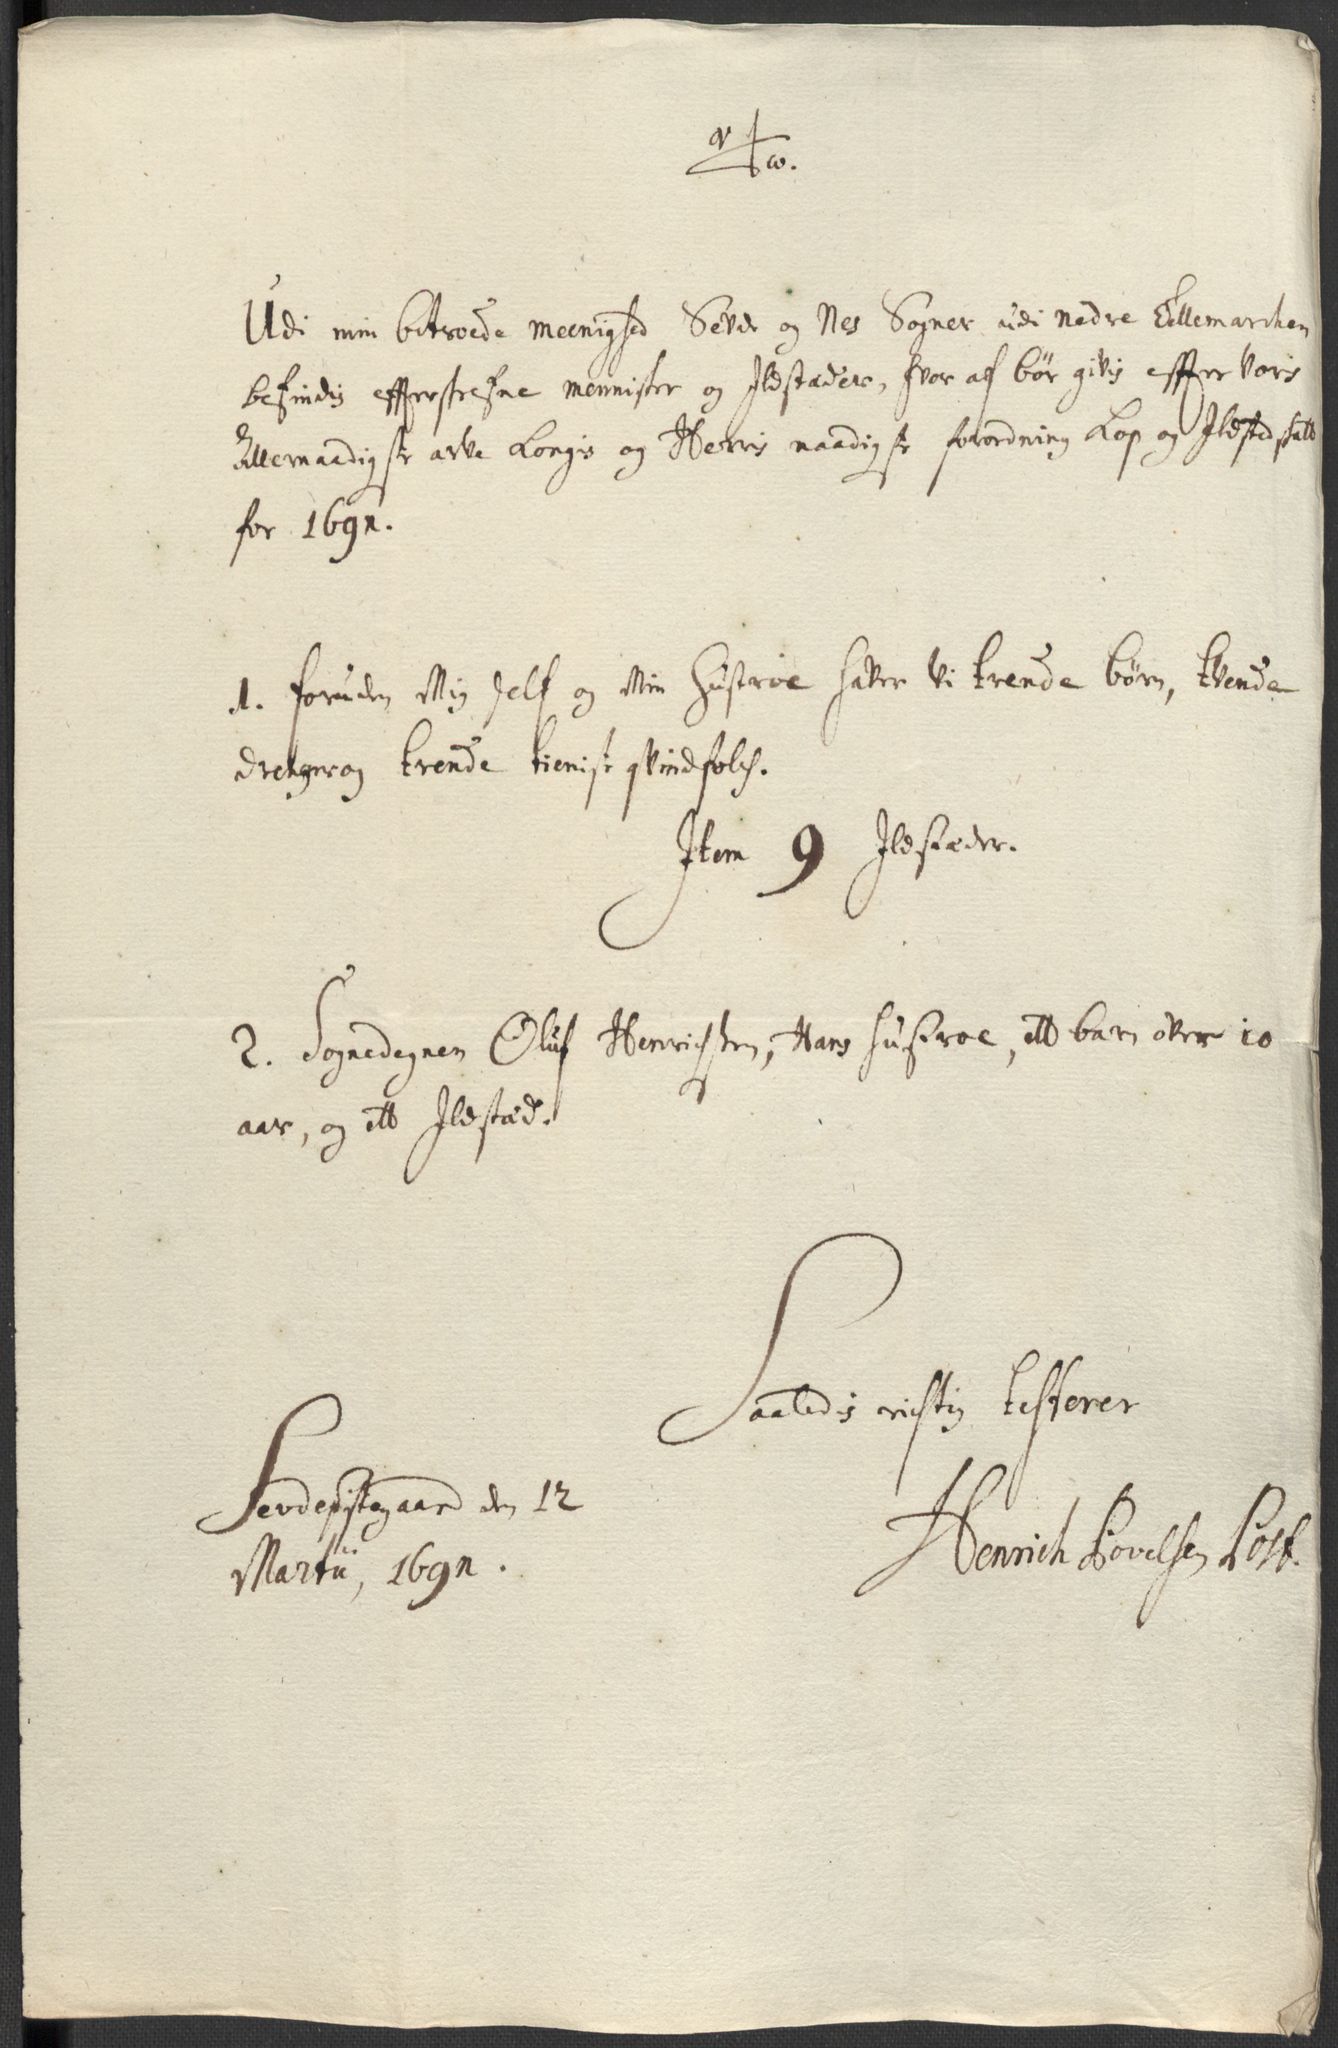 Udi min betroede meenighed Sevde og Nes Sogner udi nedre Tellemarchen
befindis effterskrefne mennisker og Ildstæder, hvor af bør givis effter vors
Allernaadigste arve Kongis og Herris naadigste forordning Kop og Ildstedskatt
for 1691.
1. foruden Mig self og Min Hustroe haver vi trende børn, tvende
drenger og trende tieniste qvindfolch.
Item 9 Ildstæder.
2. Sognedegnen Oluf Henrichsen, Hans Hustroe, ett barn över 10
aar, og ett Ildstæd.
Saaledis richtig testerer
Sevdepstegaard den 12
Martii, 1691.
Henrich Povelsen Post.